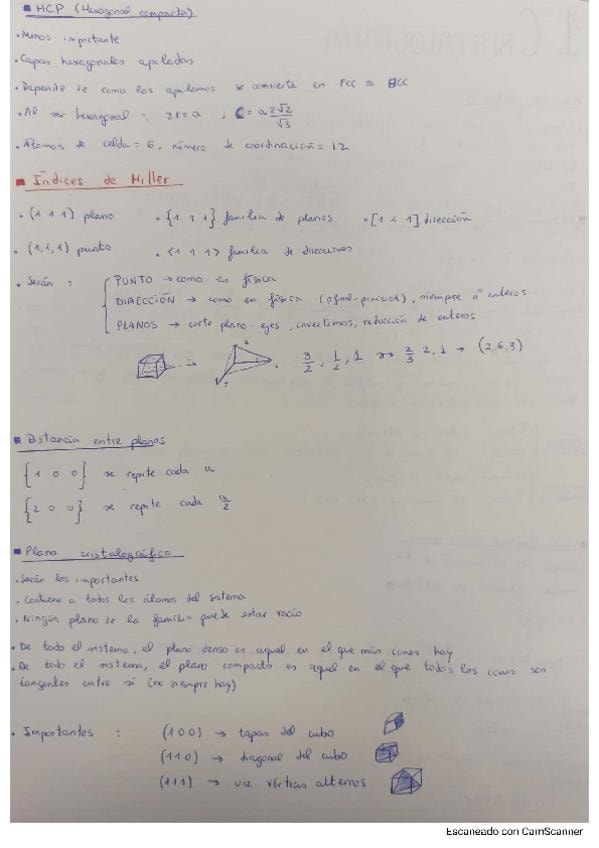 ▪ HCP (Hexagonal compacta)
• Menos importante
• Capas hexagonales apiladas
• Depende de como los apilemos se convierte en FCC o BCC
• Al ser hexagonal : 2r = a , C = a 2√2/√3
• Átomos de celda = 6, número de coordinación = 12
▪ Índices de Miller
• (1 1 1) plano • {1 1 1} familia de planos • [1 1 1] dirección
• (1,1,1) punto • <1 1 1> familia de direcciones
• Serán : PUNTO → como en física
DIRECCIÓN → como en física (pfinal - pinicial), siempre nº enteros
PLANOS → corte plano - ejes, invertimos, reducción de enteros
3/2, 1/2, 1 → 2/3 2, 1 → (2 6 3)
▪ Distancia entre planos
{1 0 0} se repite cada a
{2 0 0} se repite cada a/2
▪ Plano cristalográfico
• Serán los importantes
• Contiene a todos los átomos del sistema
• Ningún plano de la familia puede estar vacío
• De todo el sistema, el plano denso es aquel en el que más iones hay
• De todo el sistema, el plano compacto es aquel en el que todos los iones son
tangentes entre sí (no siempre hay)
• Importantes : (1 0 0) → tapas del cubo
(1 1 0) → diagonal del cubo
(1 1 1) → une vértices alternos
Escaneado con CamScanner